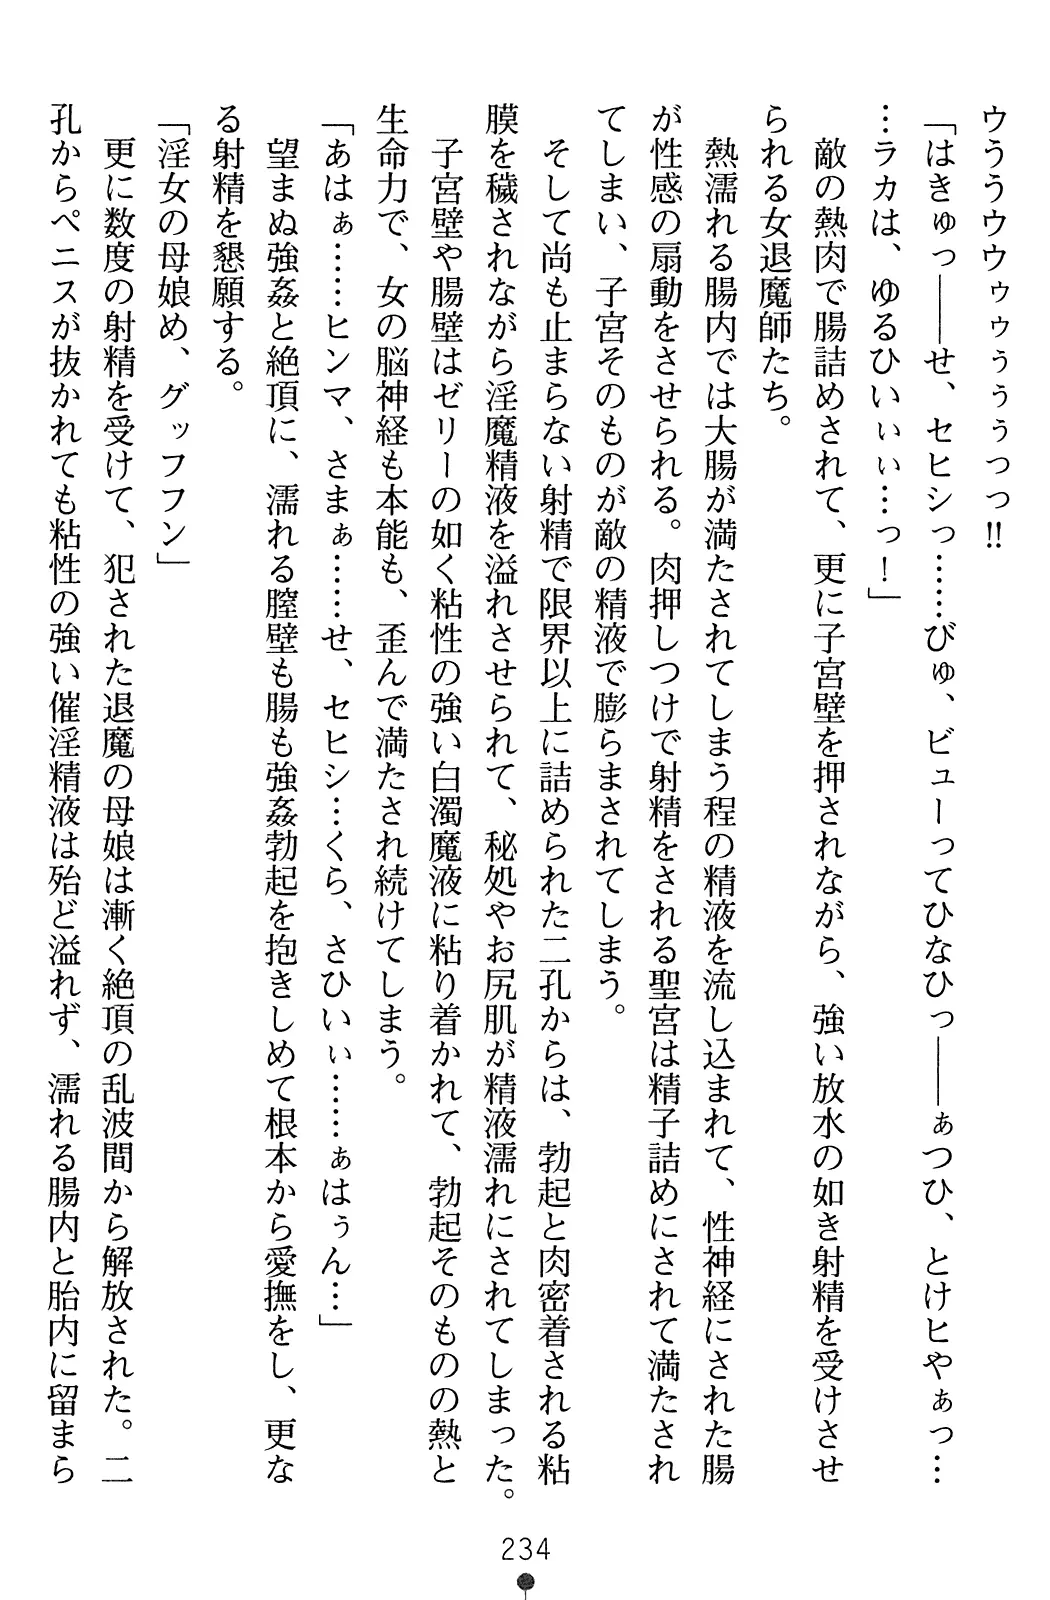 ウううウウゥゥぅぅぅっっ!!
「はきゅっ――せ、セヒシっ……びゅ、ビューってひなひっ――ぁつひ、とけヒやぁっ…
…ラカは、ゆるひいぃぃ…っ！」
敵の熱肉で腸詰めされて、更に子宮壁を押されながら、強い放水の如き射精を受けさせ
られる女退魔師たち。
熱濡れる腸内では大腸が満たされてしまう程の精液を流し込まれて、性神経にされた腸
が性感の扇動をさせられる。肉押しつけで射精をされる聖宮は精子詰めにされて満たされ
てしまい、子宮そのものが敵の精液で膨らまされてしまう。
そして尚も止まらない射精で限界以上に詰められた二孔からは、勃起と肉密着される粘
膜を穢されながら淫魔精液を溢れさせられて、秘処やお尻肌が精液濡れにされてしまった。
子宮壁や腸壁はゼリーの如く粘性の強い白濁魔液に粘り着かれて、勃起そのものの熱と
生命力で、女の脳神経も本能も、歪んで満たされ続けてしまう。
「あはぁ……ヒンマ、さまぁ……せ、セヒシ…くら、さひいぃ……ぁはぅん…」
望まぬ強姦と絶頂に、濡れる膣壁も腸も強姦勃起を抱きしめて根本から愛撫をし、更な
る射精を懇願する。
「淫女の母娘め、グッフフン」
更に数度の射精を受けて、犯された退魔の母娘は漸く絶頂の乱波間から解放された。二
孔からペニスが抜かれても粘性の強い催淫精液は殆ど溢れず、濡れる腸内と胎内に留まら
234